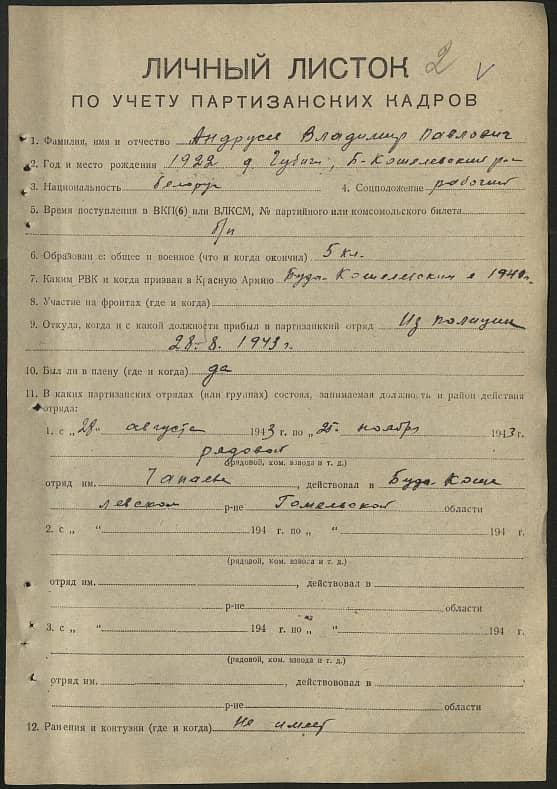 2 V
ЛИЧНЫЙ ЛИСТОК
ПО УЧЕТУ ПАРТИЗАНСКИХ КАДРОВ
1. Фамилия, имя и отчество Андрусев Владимир Павлович
2. Год и место рождения 1922 д. Губичи, Б-Кошелевский р-н
3. Национальность белорус 4. Соцположение рабочий
5. Время поступления в ВКП(б) или ВЛКСМ, № партийного или комсомольского билета
б/п
6. Образование: общее и военное (что и когда окончил) 5 кл.
7. Каким РВК и когда призван в Красную Армию Буда-Кошелевским в 1940г.
8. Участие на фронтах (где и когда)
9. Откуда, когда и с какой должности прибыл в партизанкий отряд Из полиции
28-8. 1943 г.
10. Был ли в плену (где и когда) да
11. В каких партизанских отрядах (или группах) состоял, занимаемая должность и район действия
отряда:
1. с „28„ августа 1943 г. по „25„ ноября 1943 г.
рядовой
(рядовой, ком. взвода и т. д.)
отряд им. Чапаева, действовал в Буда-Коше
левском р-не Гомельской области
2. с „ “ 194 г. по „ “ 194 г.
(рядовой, ком. взвода и т. д.)
отряд им. , действовал в
р-не области
3. с „ “ 194 г. по „ “ 194 г.
(рядовой, ком. взвода и т. д.)
отряд им. , действовал в
р-не области
12. Ранения и контузии (где и когда) Не имеет